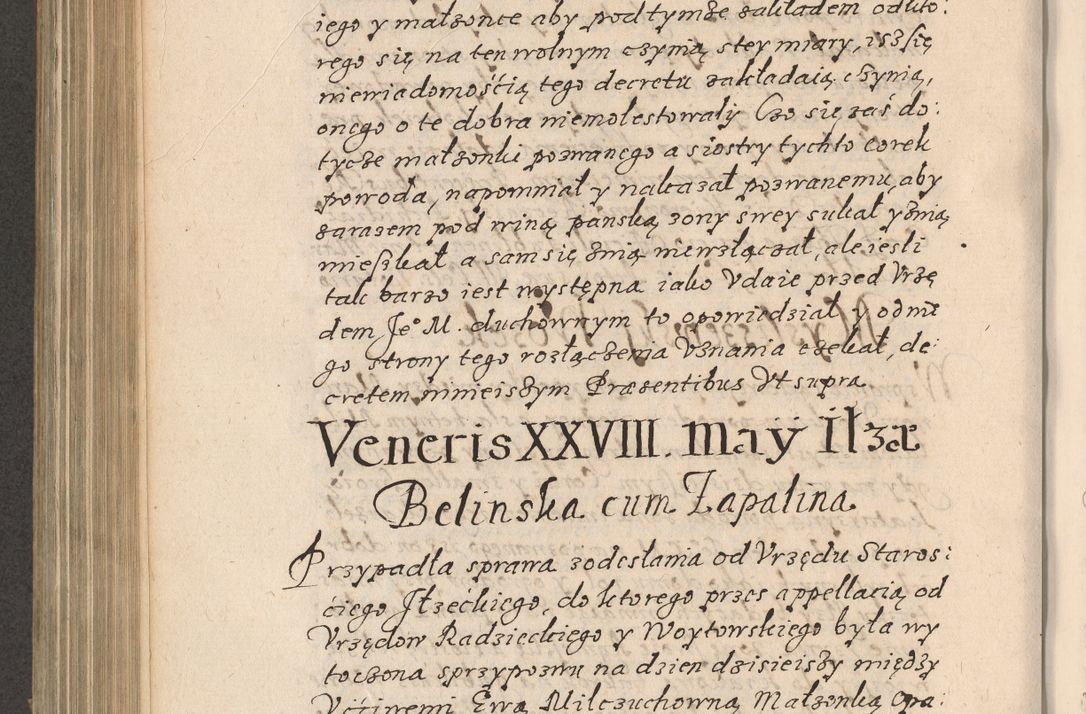 iego y małzonce aby podtymże zakładem odkto:
rego się na ten wolnym czynią stey miary, isz się
niewiadomością tego decretu zakładaią czynią,
onego o te dobra niemolestowały Czo się zaś do:
tycze małzonki pozwanego a siostry tychto corek
powoda, napomniał y nakazał pozwanemu, aby
zarazem pod winą panską zony swey sukał y znią
mieszkał a sam się znią niewzłączał, ale iesli
tak barzo iest występna iako Vdaie przed Vrzę
dem Je° M. duchownym to opowiedział y odnie
go strony tego rozłączenia Vznania czekał, de:
cretem ninieiszym Præsentibus Vt supra
Veneris XXVIII. maÿ Iłzæ
Belinska cum Zapalina
Przypadła sprawa zodesłania od Vrzędu Staros:
ciego Jłzeckiego, do ktorego przes appellacią od
Vrzędow Radzieckiego y Woytowskiego była wy
toczona sprzypozwu na dzien dzisieiszy między
Vćiwemi Ewą Milczuchowną Małzonką Opa: